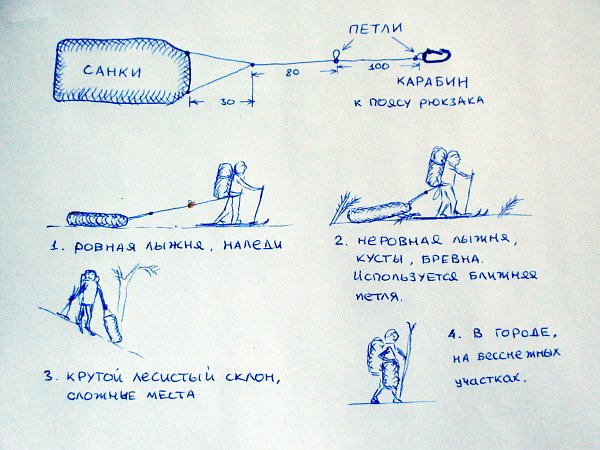 ПЕТЛИ
САНКИ
80
100
30
КАРАБИН
К ПОЯСУ РЮКЗАКА
1. РОВНАЯ ЛЫЖНЯ, НАЛЕДИ
2. НЕРОВНАЯ ЛЫЖНЯ,
КУСТЫ, БРЕВНА.
ИСПОЛЬЗУЕТСЯ БЛИЖНЯЯ
ПЕТЛЯ.
3. КРУТОЙ ЛЕСИСТЫЙ СКЛОН,
СЛОЖНЫЕ МЕСТА
4. В ГОРОДЕ,
НА БЕССНЕЖНЫХ
УЧАСТКАХ.